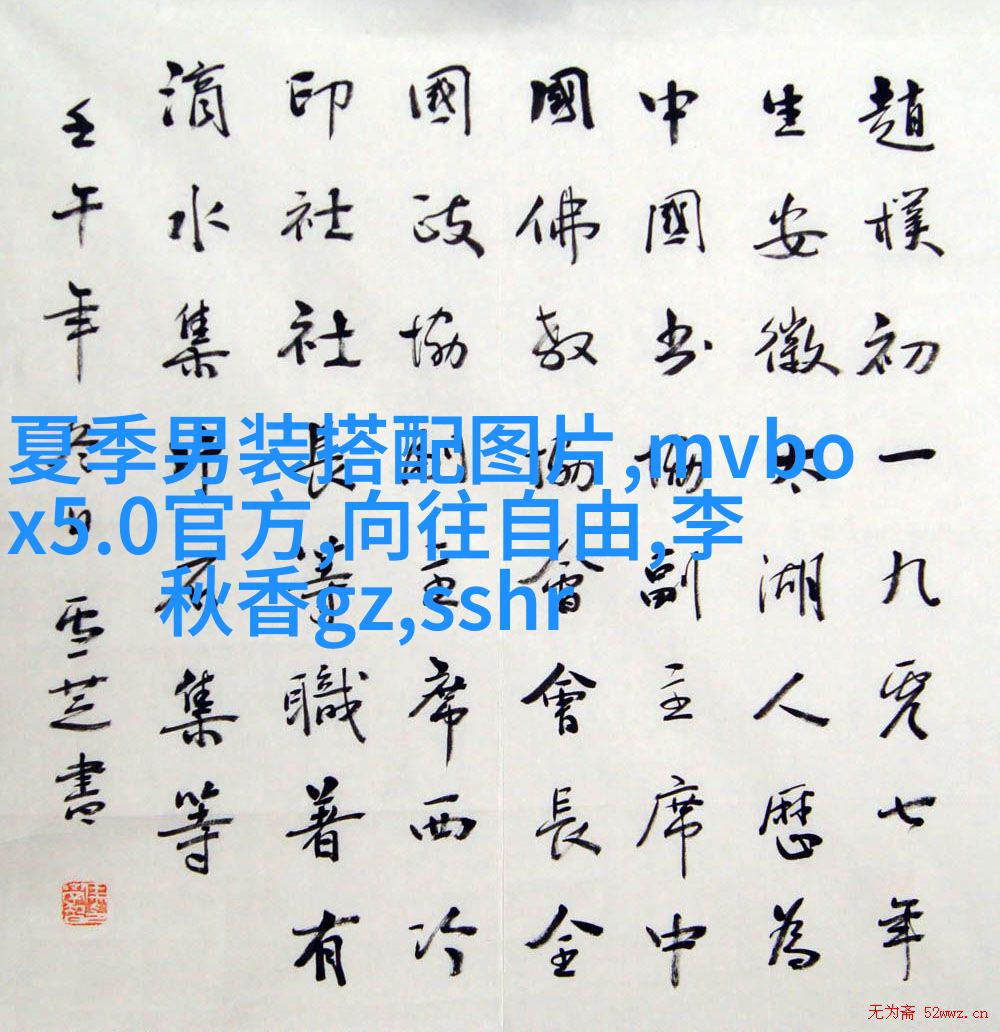 趙樸初一九零七年
生安徽太湖人歷為
中國书協副主席中
國佛教協會會長全
國政協副主席西冷
印社社長等職著有
滴水集片石集等
壬午年冬日雪芝書
夏季男装搭配图片,mvbo
x5.0官方,向往自由,李
秋香gz,sshr
无为斋 52wwz.cn